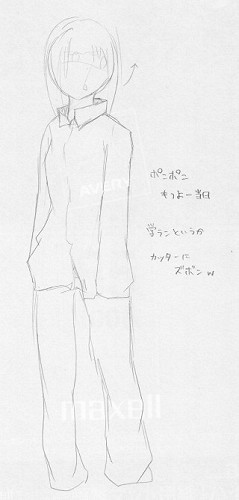 ポンポン
もつよー当日
学ランというか
カッターに
ズボンw
AVERY
maxell